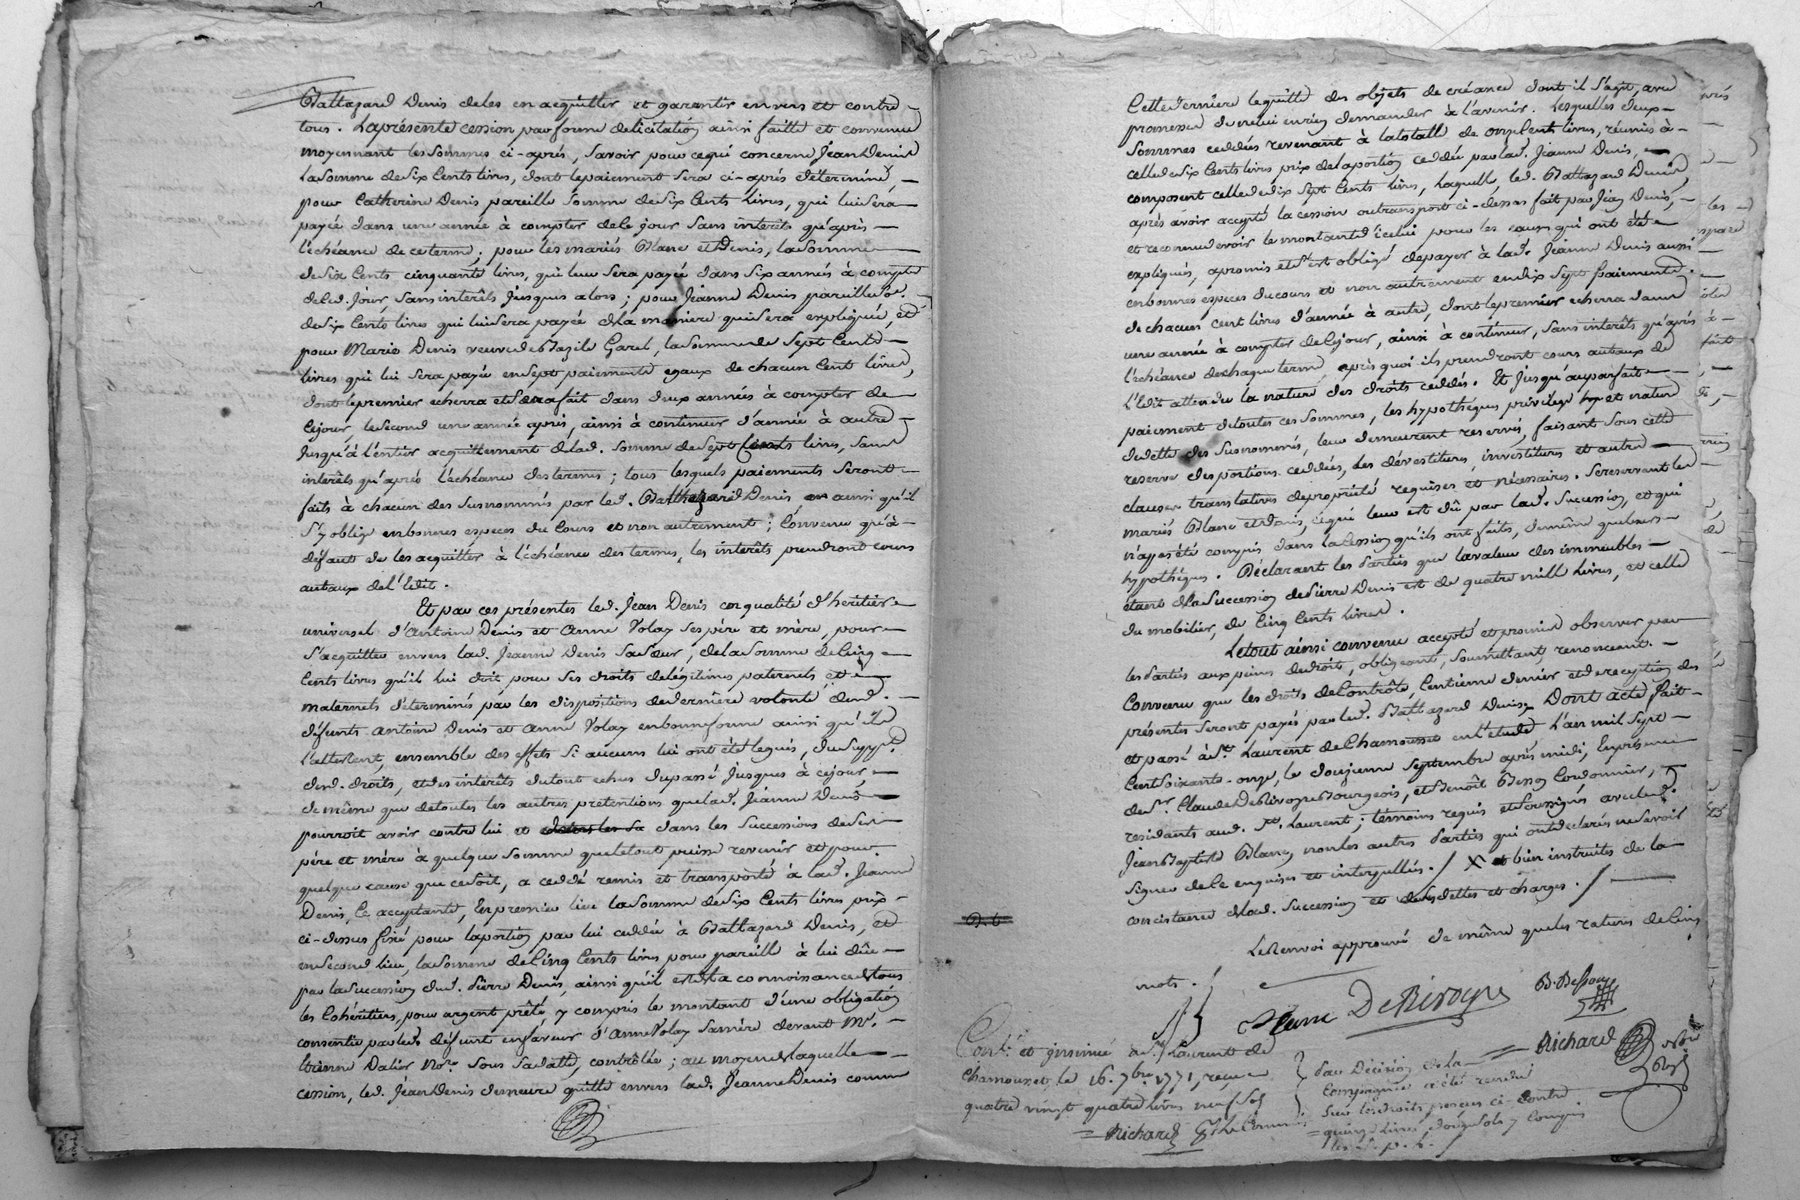 Baltazard Denis de les en acquitter et garentir envers et contre
tous. La présente cession par forme de licitation ainsi faitte et convenue
moyennant les sommes ci-aprés, savoir pour ce qui concerne Jean Denis
la somme de six Cents livres, dont le paiement sera ci-aprés déterminé,
pour Catherine Denis pareille somme de six Cents livres, qui lui sera
payée dans une année à compter de ce jour sans interêt qu'aprés
l'échéance de ce terme; pour les mariés Blanc et Denis, la somme
de six Cents cinquante livres, qui leur sera payée dans six années à compter
de ced. jour, sans interêts jusques alors; pour Jeanne Denis pareille so.e
de six Cents livres qui lui sera payée de la maniere qui sera expliquée, et
pour Marie Denis veuve de Bazile Garel, la somme de sept Cents
livres qui lui sera payée en sept paiements egaux de chacun Cent livres,
dont le premier echerra et sera fait dans deux années à compter de
ce jour, le second une année aprés, ainsi à continuer d'année à autre
jusqu'à l'entier acquittement de lad. somme de sept Cents livres, sans
interêts qu'aprés l'échéance des termes; tous lesquels paiements seront
faits à chacun des susnommés par led. Balthazard Denis ainsi qu'il
s'y oblige en bonnes especes du Cours et non autrement; Convenu qu'à
défaut de les acquitter à l'échéance des termes, les interêts prendront cours
au taux de l'Edit.
Et par ces présentes led. Jean Denis en qualité d'heritier
universel d'Antoine Denis et Anne Volay ses père et mère, pour
s'acquitter envers lad. Jeanne Denis sa sœur, de la somme de Cinq
Cents livres qu'il lui doit pour ses droits de légitimes paternels et
maternels déterminés par les dispositions de derniere volonté desd.
défunts Antoine Denis et Anne Volay en bonne forme ainsi qu'ils
l'attestent, ensemble des effets si aucuns lui ont été legués, du suppt.
desd. droits, et des interêts du tout echus du passé jusques à ce jour,
de même que de toutes les autres prétentions que lad. Jeanne Denis
pourroit avoir contre lui et dans les successions de ses
père et mère à quelque somme que le tout puisse revenir et pour
quelque cause que ce soit, a cedé remis et transporté à lad. Jeanne
Denis, ce acceptante, En premier lieu la somme de six Cents livres prix
ci-dessus fixé pour la portion par lui cedée à Baltazard Denis, et
en second lieu, la somme de Cinq Cents livres pour pareille à lui dûe
par la succession dud. Pierre Denis, ainsi qu'il est de la connoissance de tous
les Cohéritiers, pour argent prêté, y compris le montant d'une obligation
consentie par led. défunt en faveur d'Anne Volay sa mère devant Me.
Etienne Dalier No.re sous sa datte, contrôllée; au moyen de laquelle
cession, led. Jean Denis demeure quitte envers lad. Jeanne Denis comme
Cette derniere le quitte des objets de créance dont il s'agit, avec
promesse de ne lui en rien demander à l'avenir. Lesquelles deux
sommes cedées revenant à la totall de onze Cents livres, réunies à
celle de six Cents livres prix de la portion cedée par lad. Jeanne Denis,
composent celle de dix sept Cents livres, laquelle, led. Baltazard Denis,
aprés avoir accepté la cession ou transport ci-dessus fait par Jean Denis,
et reconnu devoir le montant d'icelui pour les causes qui ont été
expliquées, a promis et s'est obligé de payer à lad. Jeanne Denis aussi
en bonnes especes du cours et non autrement en dix sept paiements
de chacun cent livres d'année à autre, dont le premier echerra dans
une année à compter de ce jour, ainsi à continuer, sans interêts qu'aprés
l'échéance de chaque terme, aprés quoi ils prendront cours au taux de
l'Edit attendu la nature des droits cedés. Et jusqu'au parfait
paiement de toutes ces sommes, les hypothéques privilége et nature
de dette des susnommés, leur demeurent reservés, faisant sous cette
reserve des portions cedées, les dévestitures, investitures et autres
clauses translatives de propriété requises et nécessaires. Se reservant les
mariés Blanc et Denis, ce qui leur est dû par lad. succession, et qui
n'a pas été compris dans la cession qu'ils ont faite, de même que leurs
hypothéques. Déclarent les parties que la valeur des immeubles
étants de la succession de Pierre Denis est de quatre mille livres, et celle
du mobilier, de Cinq Cents livres.
Le tout ainsi convenu accepté et promis observer par
les parties aux peines de droit, obligeant, soumettant, renonceant.
Convenu que les droits de Contrôle, Centieme denier et de reception des
présentes seront payés par led. Baltazard Denis. Dont acte fait
et passé à St. Laurent de Chamousset en l'étude l'an mil sept
Cent soixante-onze, le douzieme septembre aprés midi, En présence
de Sr. Claude De Rivoyre Bourgeois, et Benoît Besson Cordonnier,
residants aud. St. Laurent; témoins requis et soussignés avec led.
Jean Baptiste Blanc, non les autres parties qui ont déclarés ne savoir
signer de ce enquises et interpellées. / X bien instruites de la
consistance de lad. succession et de ses dettes et charges. /
Le Renvoi approuvé de même que les ratures de Cinq
mots. /
Blanc DeRivoyre B. Besson
Richard
Cont.é et insinué à St. Laurent de
Chamousset, le 16. 7bre 1771, reçu
quatre vingt quatre livres neuf sols
Richard
Par Décision de la
Compagnie a été rendu
sur les droits perçus ci-contre
quinze livres douze sols y compris
les s. p. L.